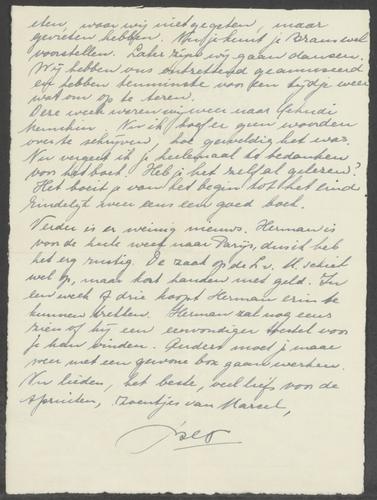 eten, waar wij niet gegeten, maar
gevreten hebben. Nou je kunt je Bram wel
voorstellen. Later zijn wij gaan dansen.
Wij hebben ons ontzettend geamuseerd
en hebben tenminste voor een tijdje weer
wat om op te teren.
Deze week waren wij weer naar Jehudi
Menuhin. Nu ik hoef er geen woorden
over te schrijven, hoe geweldig het was.
Nu vergeet ik je helemaal te bedanken
voor het boek. Heb je het zelf al gelezen?
Het boeit je van het begin tot het eind.
Eindelijk weer eens een goed boek.
Verder is er weinig nieuws. Herman is
voor de hele week naar Parijs, dus ik heb
het erg rustig. De zaak op de L.v. M. schiet
wel op, maar kost handen met geld. In
een week of drie hoopt Herman erin te
kunnen trekken. Herman zal nog eens
zien of hij een eenvoudiger stestel voor
je kan vinden. Anders moet je maar
weer met een gewone box gaan werken.
Nu lieden, het beste, veel liefs voor de
spruiten, zoentjes van Marcel,